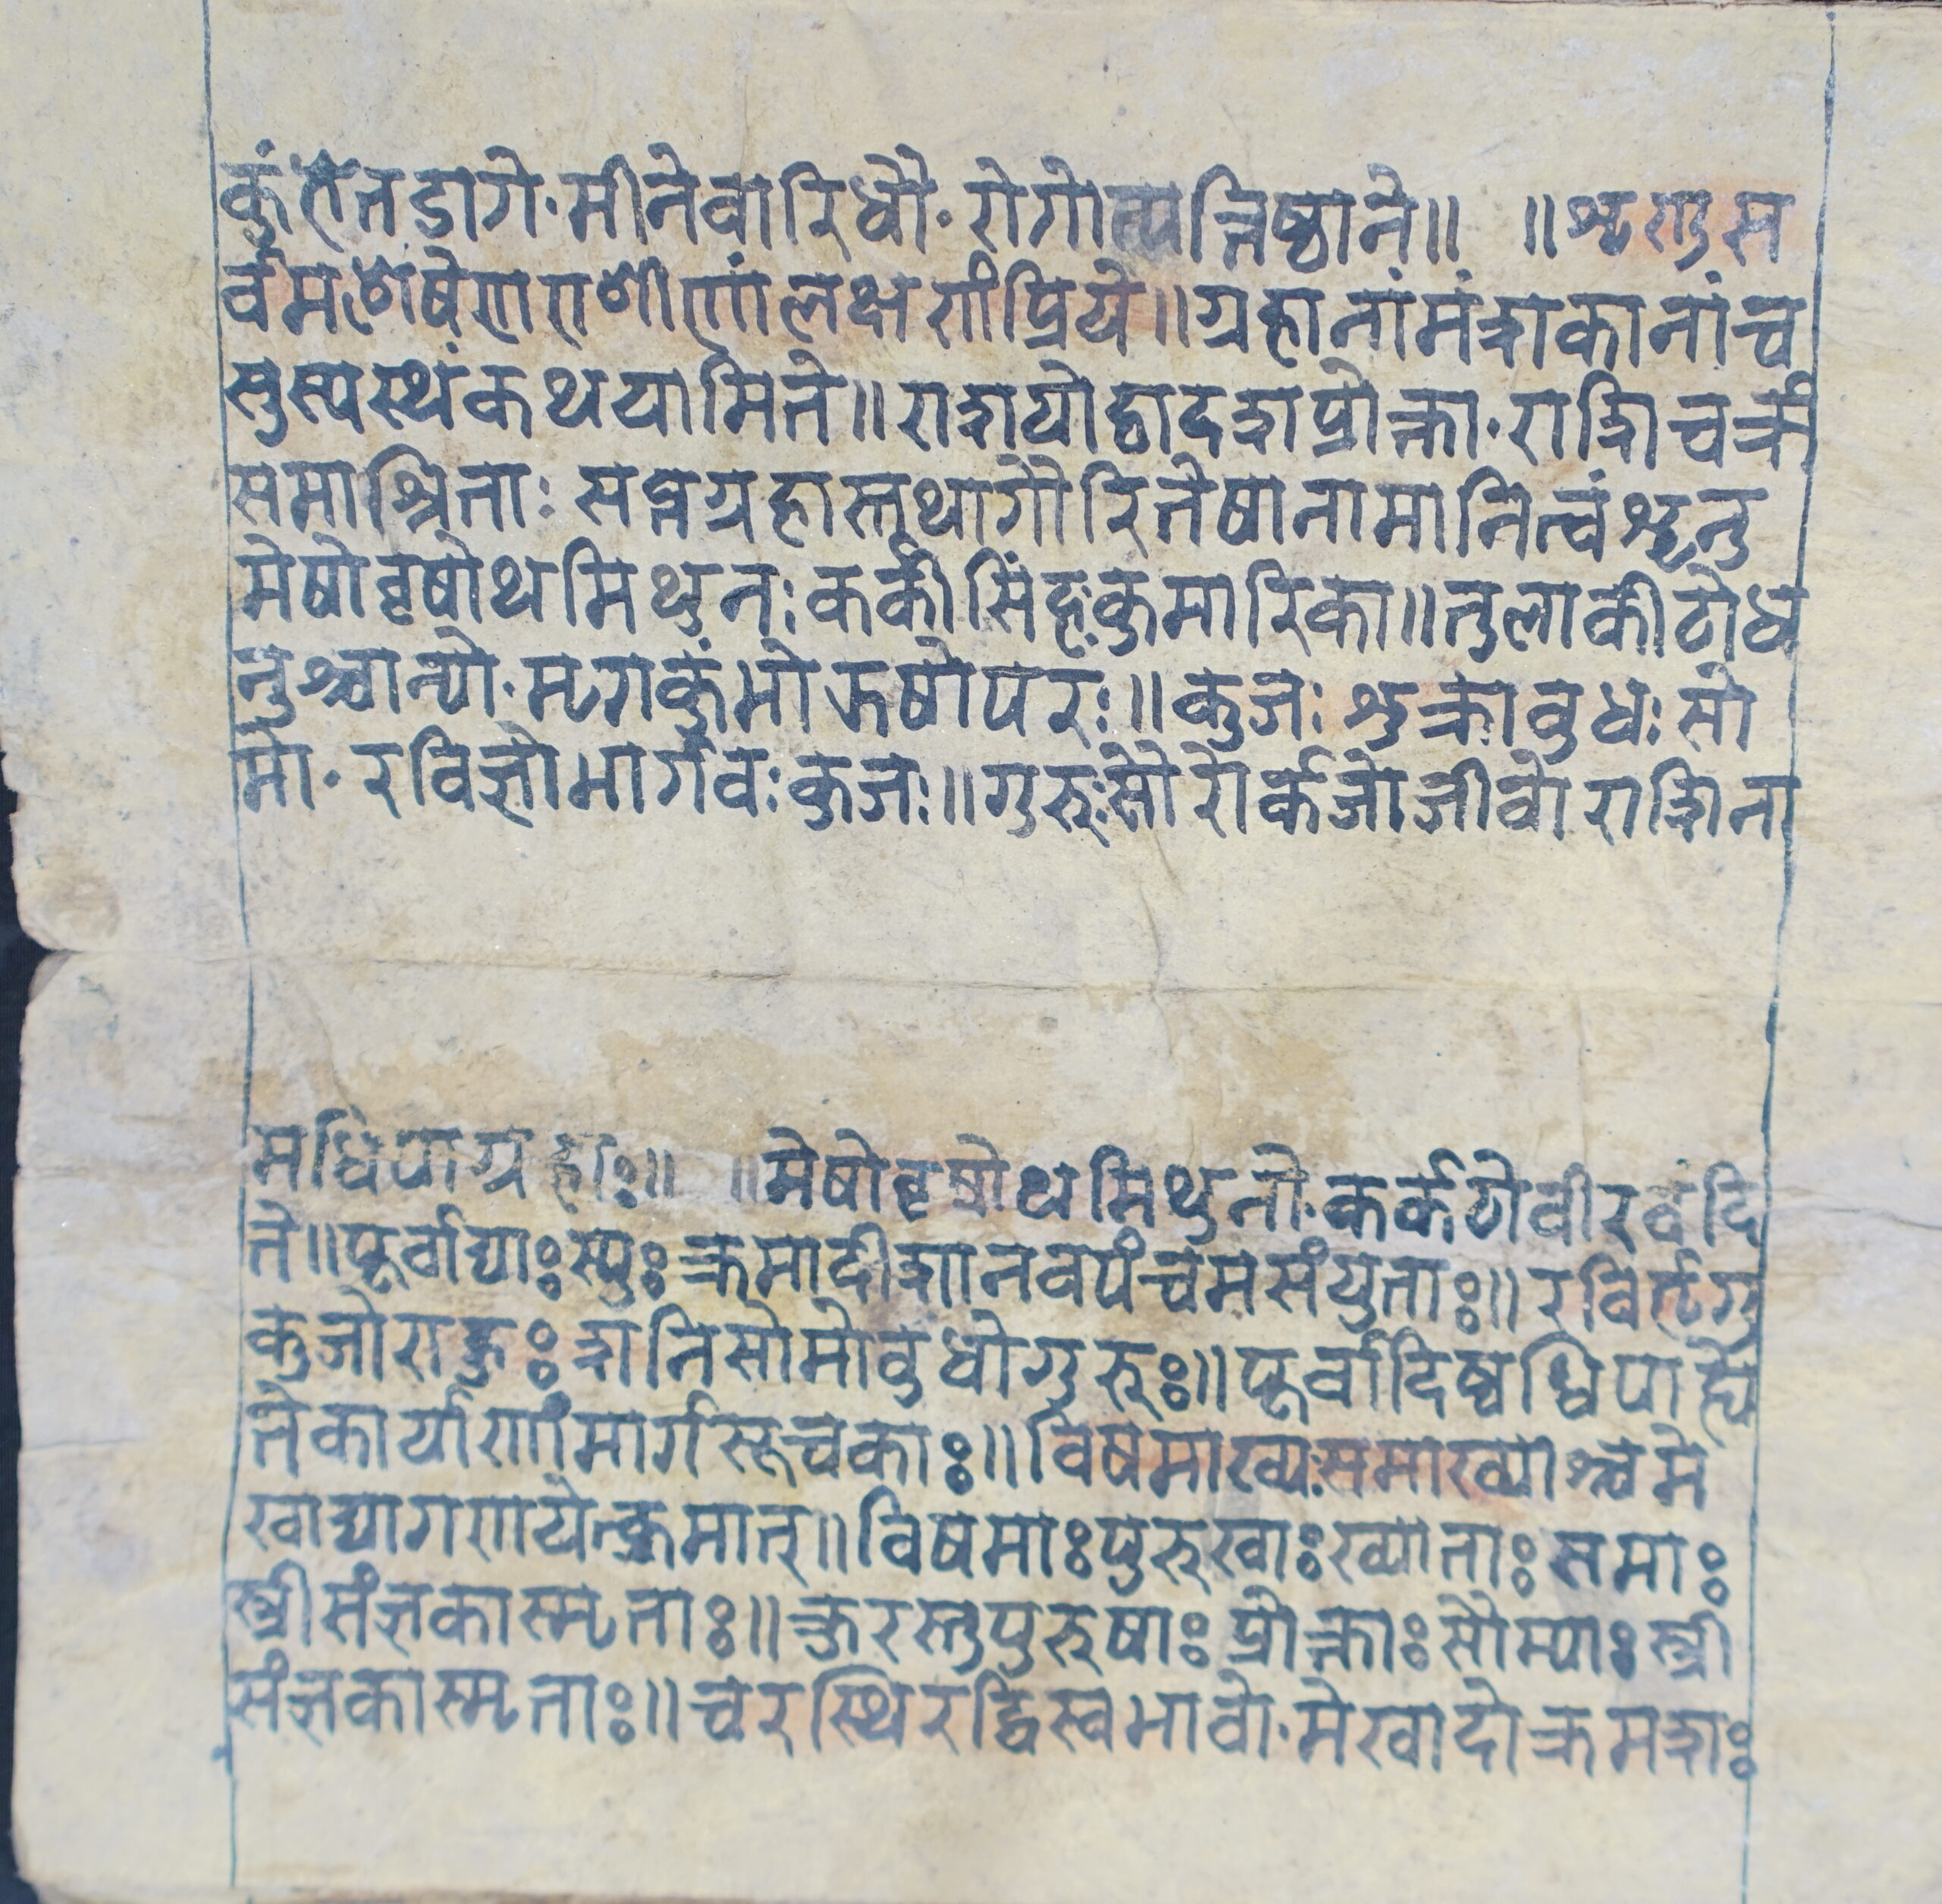 कुंभेतडागे·मीनेवारिधौ·रोगोत्पन्निष्ठाने॥ ॥शृणुस
र्वमशेषेणराशीणांलक्षणंप्रिये॥ग्रहानांमंशकानांच
सुस्पस्थंकथयामिते॥राशयोद्वादशप्रोक्ता·राशिचक्रे
समाश्रिताः सप्तग्रहास्तथागौरितेषानामानित्वंशृनु
मेषोवृषोथमिथुनः कर्कीसिंहःकुमारिका॥तुलाकीटोध
नुश्चान्यो·मृगकुंभोझषोपरः॥कुजः शुक्रोबुधः सो
मो·रविज्ञोभार्गवः कुजः॥गुरुःसौरोर्कजोजीवोराशिना
मधिपाग्रहाः॥ ॥मेषोवृषोथमिथुनो·कर्कटोवीरवंदि
ते॥पूर्वाद्याः स्युः क्रमादीशानवपंचमसंयुताः॥रविर्भृगु
कुजोराहुः शनिसोमोबुधोगुरुः॥पूर्वादिष्वधिपाह्ये
तेकार्याणांमार्गसूचकाः॥विषमाख्यःसमाख्याश्चमे
खाद्यागणयेत्क्रमात्॥विषमाःपुरुखाःख्याताः समाः
स्त्रीसंज्ञकास्मृताः॥क्रुरस्तुपुरुषाः प्रोक्ताः सौम्याः स्त्री
संज्ञकास्मृताः॥चरस्थिरद्विस्वभावो·मेखादोक्रमशः